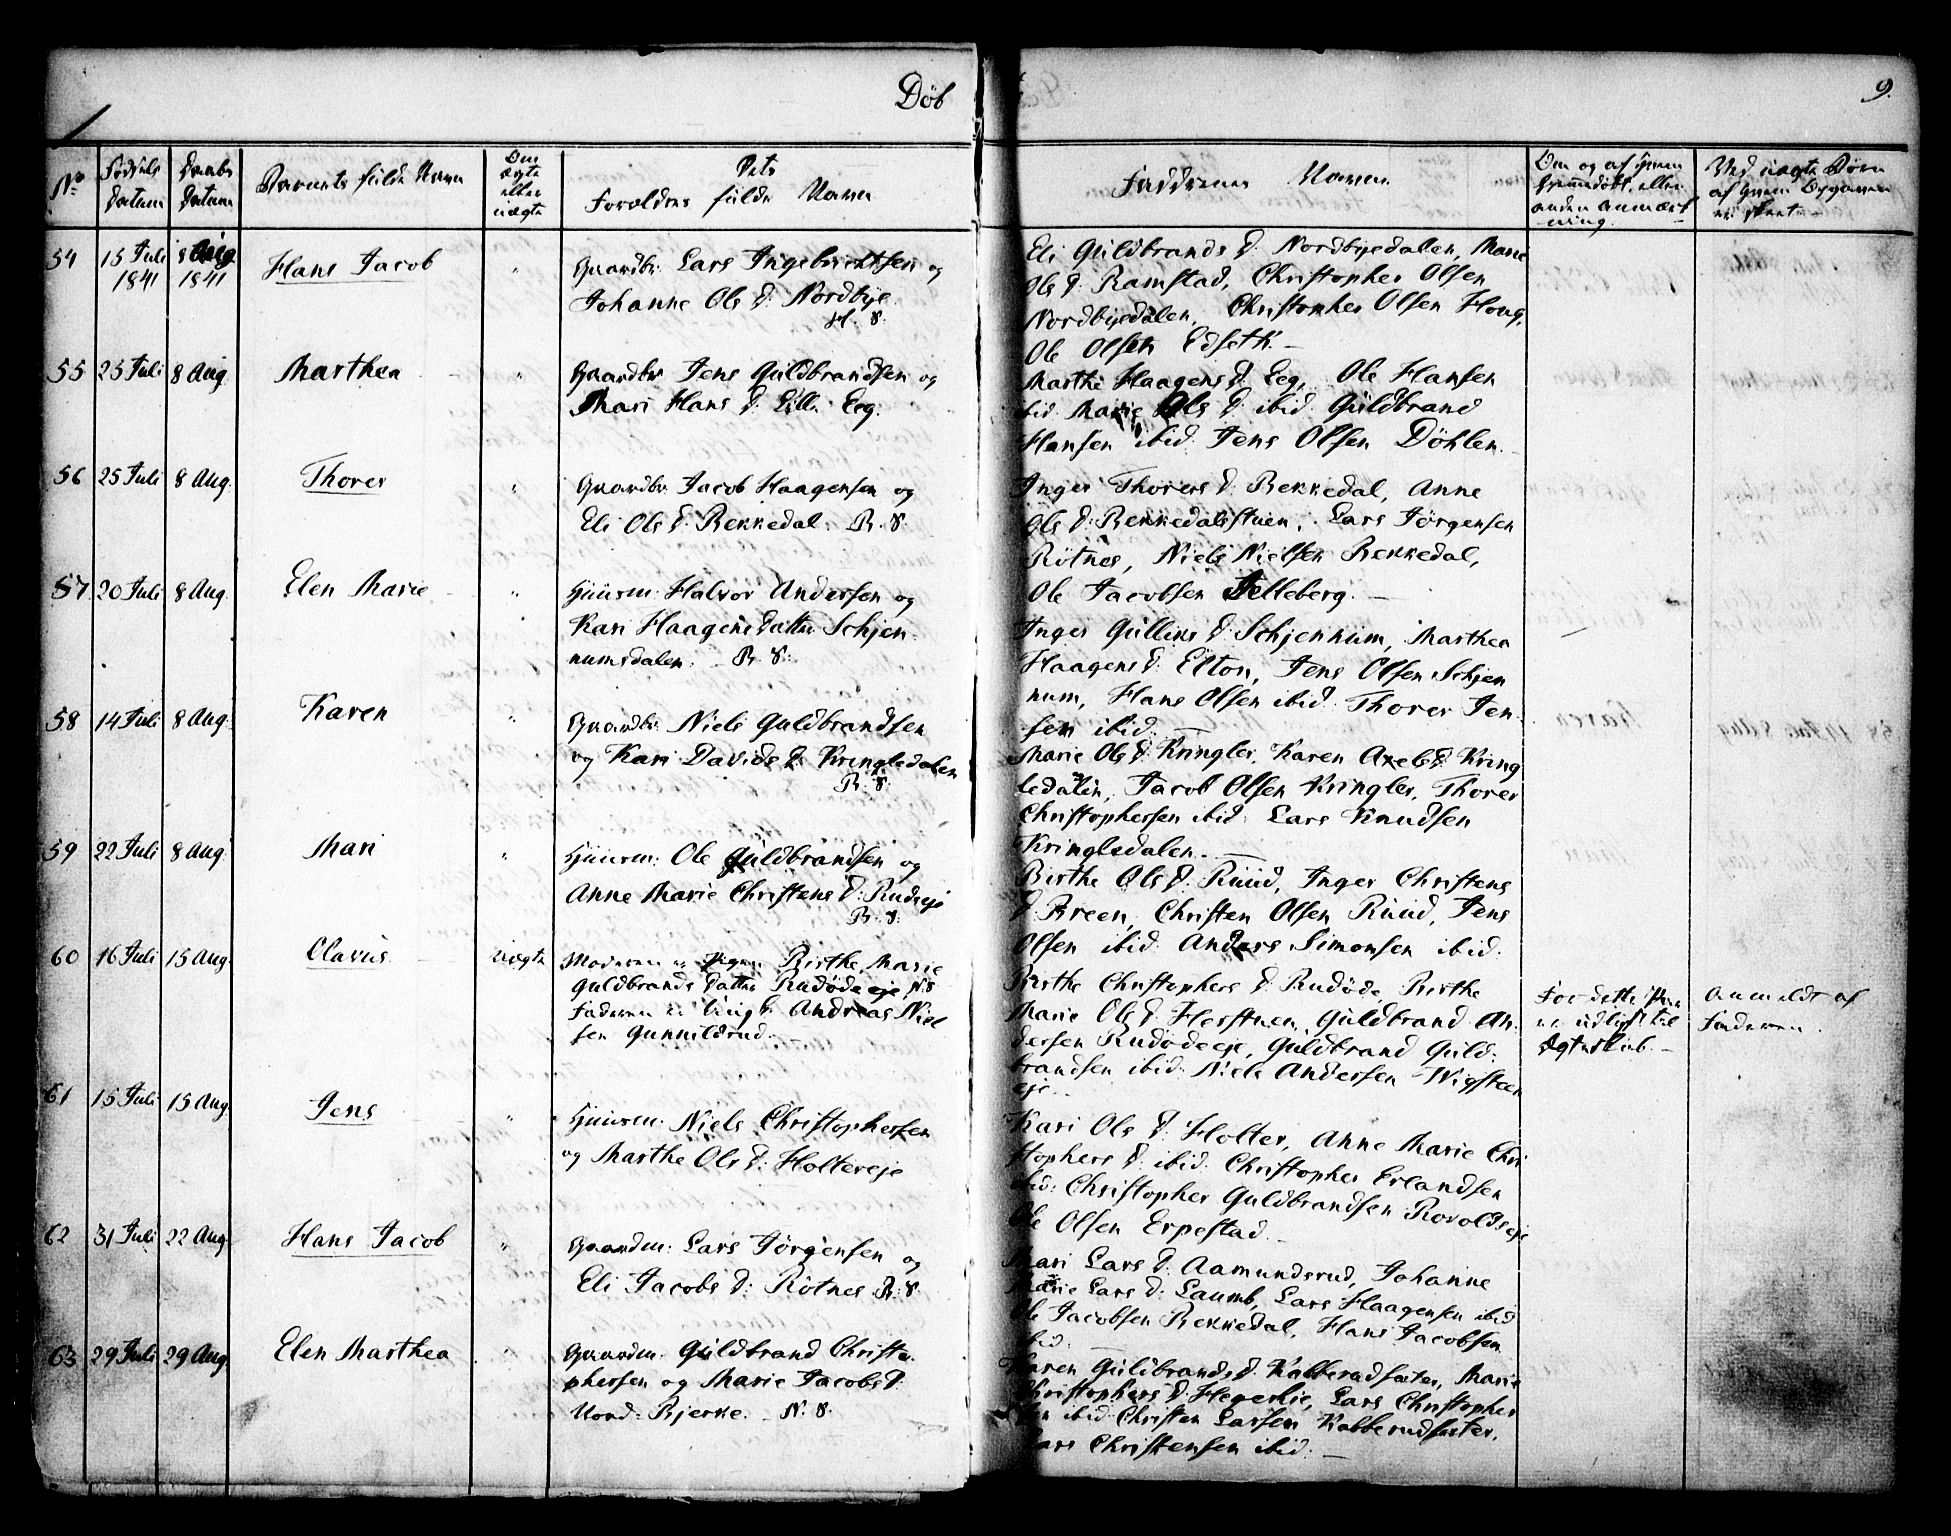 Döb
9.
No
Fødsels Datum
Daabs Datum
Barnets fulde Navn
Om ægte eller uægte
Dets Forældres fulde Navne
Faddernes Navne
Om og af hvem hjemmedöbt, eller anden Anmærkning.
Ved uægte Börn af hvem Opgaven er skeet
54 15 Juli 1841 8 Aug. 1841 Hans Jacob " Gaardbr: Lars Ingebrichtsen og
Johanne Ols D: Nordbye
H. S:
Eli Güldbrands D: Nordbyedalen, Marie
Ols D: Ramstad, Christopher Olsen
Nordbyedalen, Christopher Olsen Houg,
Ole Olsen Edseth. —
55 25 Juli 8 Aug. Marthea " Gaardbr Jens Güldbrandsen og
Mari Hans D: Lille Eeg.
Marthe Haagens D: Eeg, Ole Hansen
ibid. Marie Ols D: ibid. Güldbrand
Hansen ibid: Jens Olsen Döhlen.
56 25 Juli 8 Aug. Thorer " Gaardbr Jacob Haagensen og
Eli Ols D: Bekkedal. R. S:
Inger Thorers D: Bekkedal, Anne
Ols D: Bekkedalsstuen, Lars Jörgensen
Rötnes, Niels Nielsen Bekkedal,
Ole Jacobsen Jelleberg. —
57 20 Juli 8 Aug. Elen Marie " Huusm: Halvor Andersen og
Kari Haagens Datter Schjen-
numsdalen. R. S:
Inger Gülliks D: Schjennum, Marthea
Haagens D: Elton, Jens Olsen Schjen
num, Hans Olsen ibid. Thorer Jen-
sen ibid. —
58 14 Juli 8 Aug. Karen " Gaardbr: Niels Guldbrandsen
og Kari Davids D: Kringledalen
R: S:
Marie Ols D: Kringler, Karen Axels D: Kring
ledalen, Jacob Olsen Kringler, Thorer
Christophersen ibid: Lars Knudsen
Kringledalen. —
59 22 Juli 8 Aug. Mari " Huusm: Ole Guldbrandsen og
Anne Marie Christens D: Rudseje
R: S:
Birthe Ols D: Rüüd, Inger Christens
D: Breen, Christen Olsen Rüüd, Jens
Olsen ibid: Anders Simonsen ibid.
60 16 Juli 15 Aug. Olavus uægte Moderen er Pigen Birthe Marie
Guldbrands Datter Rudödeeje N. S
Faderen er Ungk. Andreas Niel
sen Gunnildrud.
Birthe Christophers D: Rudöde, Birthe
Marie Ols D: Herstuen, Güldbrand An-
dersen Rudödeeje, Guldbrand Guld-
brandsen ibid: Niels Andersen Wigsteen
eje.
For dette Par er udlyst til Ægteskab. —
Anmeldt af Faderen.
61 15 Juli 15 Aug. Jens " Huusm: Niels Christophersen
og Marthe Ols D: Holtereje
Kari Ols D: Holter, Anne Marie Chri
stophers D: ibid: Christopher Erlandsen
ibid: Christopher Guldbrandsen Rovoldseje
Ole Olsen Erpestad. —
62 31 Juli 22 Aug. Hans Jacob " Gaardm: Lars Jörgensen og
Eli Jacobs D: Rötnes R: S
Mari Lars D: Aamundsrud, Johanne
Marie Lars D: Laumb, Lars Haagensen ibid
Ole Jacobsen Bekkedal, Hans Jacobsen
ibid. —
63 29 Juli 29 Aug. Elen Marthea " Gaardm: Güldbrand Christo-
phersen og Marie Jacobs D:
Nord-Bjerke. N. S:
Karen Güldbrands D: Kabberudsæter, Marie
Christophers D: Hegerlie, Lars Christopher
sen ibid: Christen Larsen Kabberudsæter,
Lars Christensen ibid. —